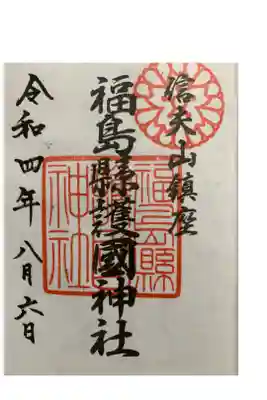 信夫山鎮座
福島縣護國神社
令和四年八月六日
福島縣
神社